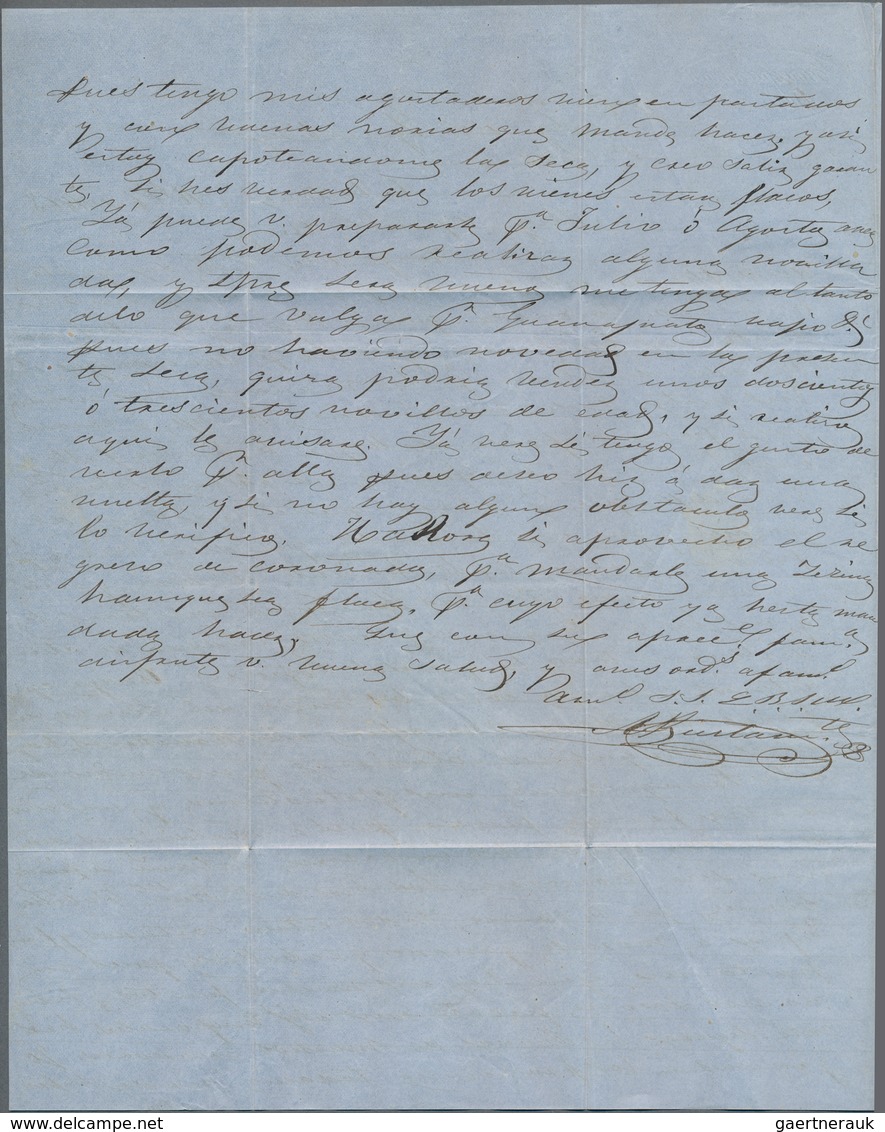 pues tengo mis agostaderos vien en pastados
y con buenas norias que mande hacer, y asi
estoy capoteandome la seca, y creo salir garan
te, si hes verdad que los vienes estan flacos,
Ya puede v. prepararse pª Julio ó Agosto aver
como podemos realizar alguna novilla
da, y spre sera bueno me tenga al tanto
delo que valga pr. Guanajuato
pues no haviendo novedad en la presen
te seca, quiza podria vender unos doscientos
ó trescientos novillos de edad, y si realizo
aqui le avisare. Ya vere si tengo el gusto de
verlo pr. alla pues deseo hir á dar una
vuelta, y si no hay algun obstaculo vere si
lo verifico. Haora si aprovecho el re
greso de coronado, pª mandarle una
haunque sea flaca, pª cuyo efeto ya hesta man
dada hacer, Que con su apreci. fam.ª
disfrute v. buena salud, y a sus ords. afmo.
am.º S. S. Q. B. S. M.
A Bustam.te
gaertnerauk